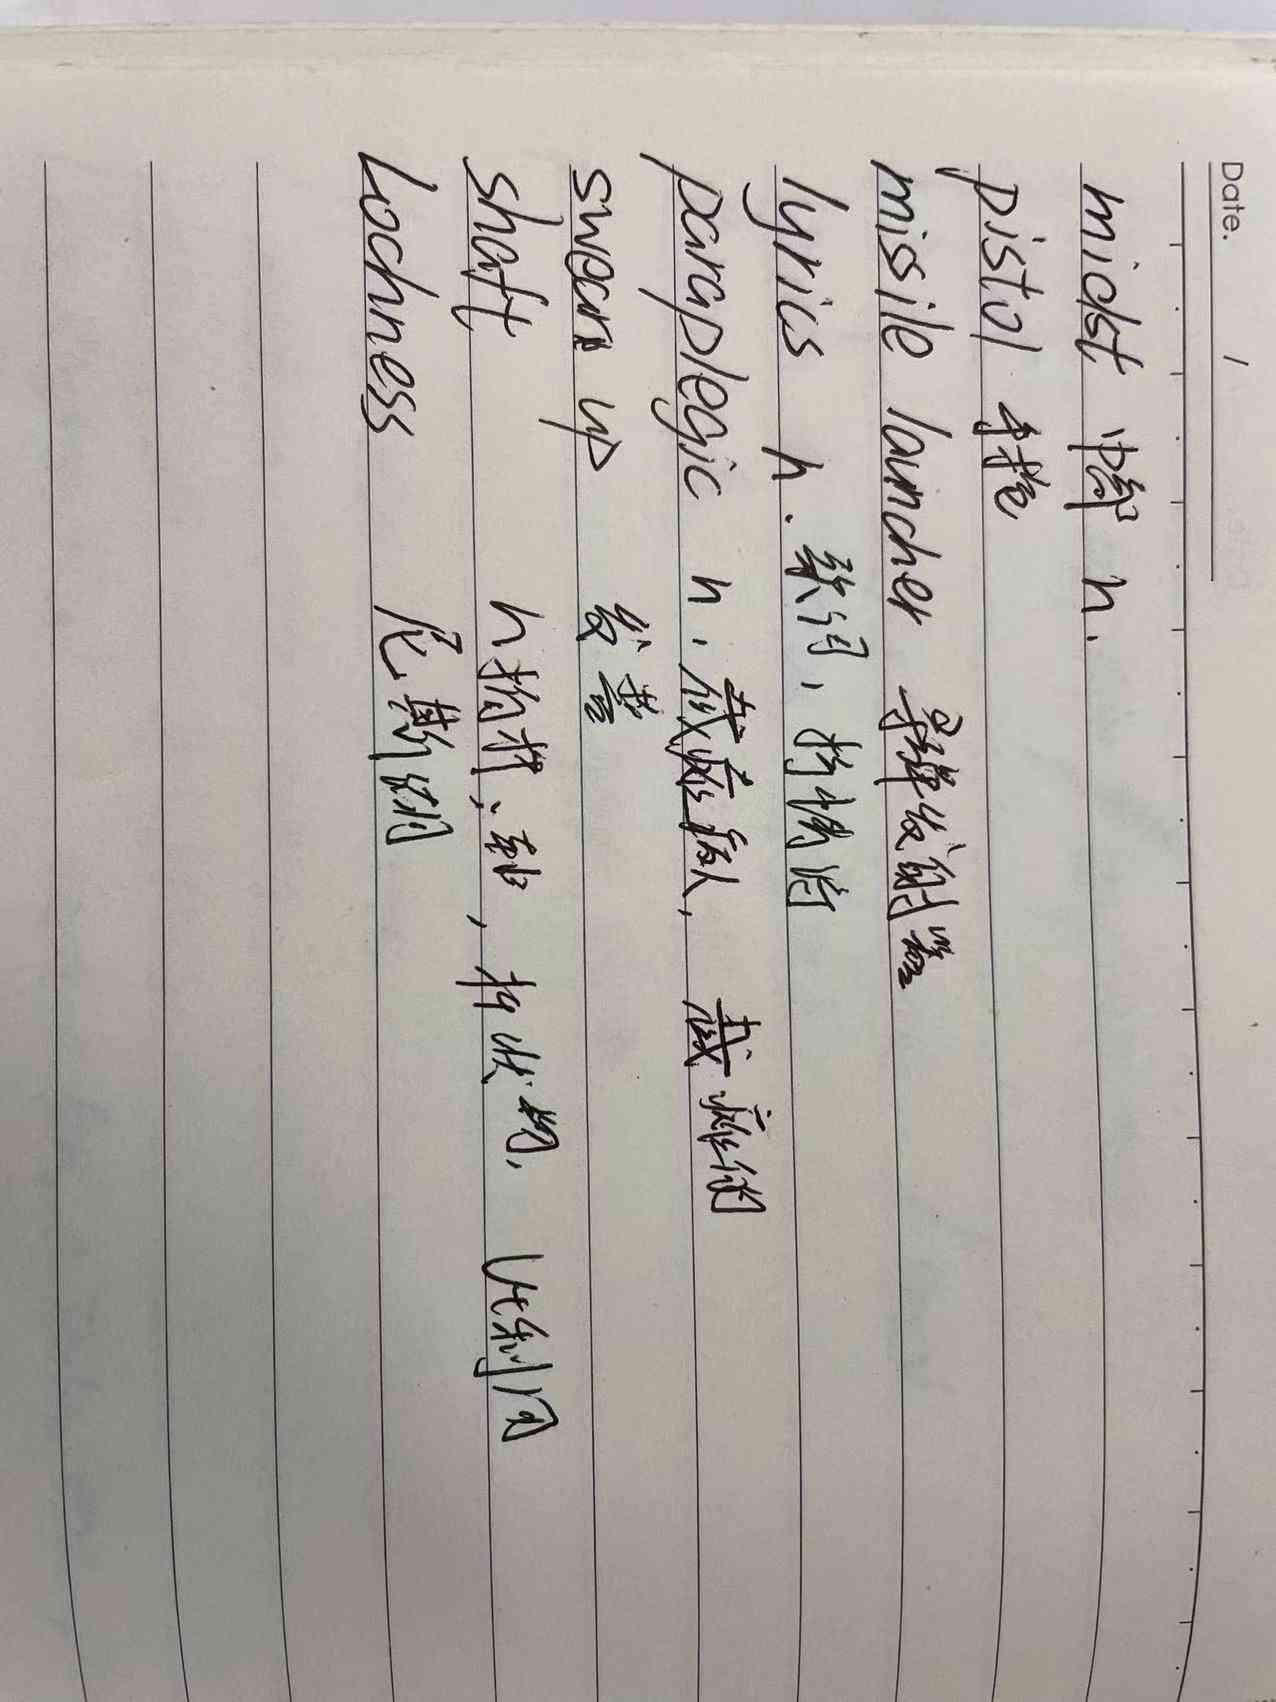 Date. /
midst 中部 n.
pistol 手枪
missile launcher 导弹发射器
lyrics n. 歌词, 抒情诗
paraplegic n. 截瘫病人, 截瘫的
swear up 发誓
shaft n 轴, 杆状物, 使利
Lochness 尼斯湖